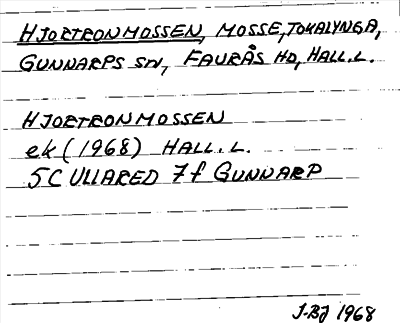 HJORTRONMOSSEN, MOSSE, TOKALYNGA,
GUNNARPS SN, FAURÅS HD, HALL.L.
HJORTRONMOSSEN
ek (1968) HALL.L.
5C ULLARED 7f GUNNARP
J-BJ 1968